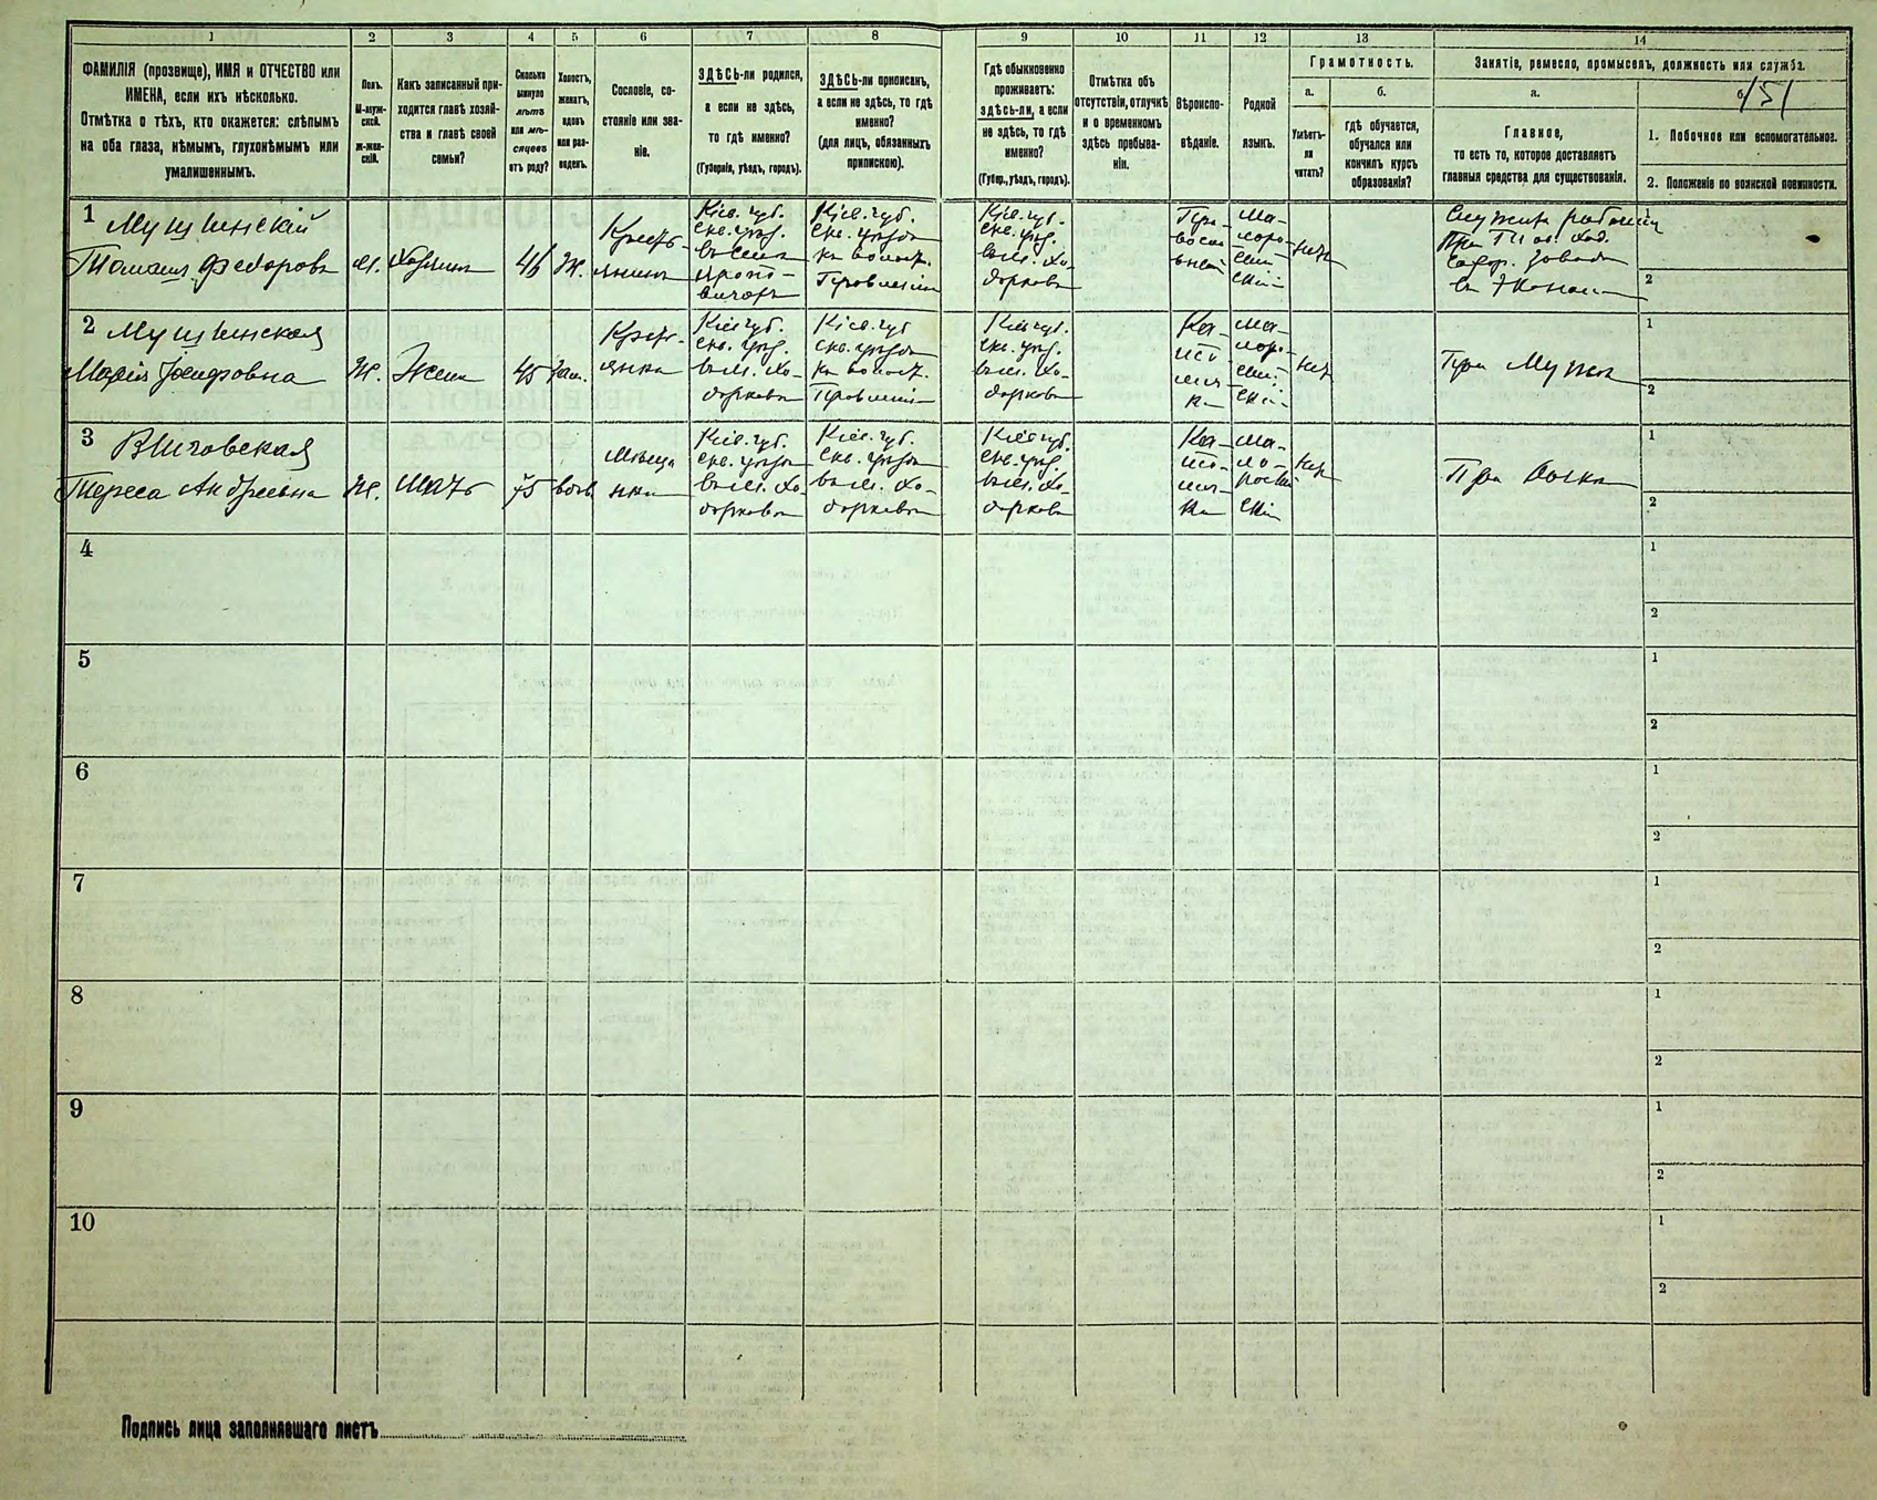 1 2 3 4 5 6 7 8 9 10 11 12 13 14
ФАМИЛІЯ (прозвище), ИМЯ и ОТЧЕСТВО или
ИМЕНА, если ихъ нѣсколько.
Отмѣтка о тѣхъ, кто окажется: слѣпымъ
на оба глаза, нѣмымъ, глухонѣмымъ или
умалишеннымъ.
Полъ.
М-муж-
ской.
Ж-жен-
скій.
Какъ записанный при-
ходится главѣ хозяй-
ства и главѣ своей
семьи?
Сколько
минуло
лѣтъ
или мѣ-
сяцевъ
отъ роду?
Холостъ,
женатъ,
вдовъ
или раз-
веденъ.
Сословіе, со-
стояніе или зва-
ніе.
ЗДѢСЬ-ли родился,
а если не здѣсь,
то гдѣ именно?
(Губернія, уѣздъ, городъ).
ЗДѢСЬ-ли приписанъ,
а если не здѣсь, то гдѣ
именно?
(для лицъ, обязанныхъ
припискою).
Гдѣ обыкновенно
проживаетъ:
здѣсь-ли, а если
не здѣсь, то гдѣ
именно?
(Губер., уѣздъ, городъ).
Отмѣтка объ
отсутствіи, отлучкѣ
и о временномъ
здѣсь пребыва-
ніи.
Вѣроиспо-
вѣданіе.
Родной
языкъ.
Грамотность.
а.
Умѣетъ-
ли
читать?
б.
гдѣ обучается,
обучался или
кончилъ курсъ
образованія?
Занятіе, ремесло, промыселъ, должность или служба.
а.
Главное,
то есть то, которое доставляетъ
главныя средства для существованія.
б.
151
1. Побочное или вспомогательное.
2. Положеніе по воинской повинности.
1
Федоровъ
м.
46
ж.
Кресть-
янинъ
Кіев. губ.
Скв. уѣзд.
Кіев. губ.
Скв. уѣзда
Кіев. губ.
Скв. уѣзд.
въ м. Хо-
доркове
Пра-
восла-
вный
Ма-
лоро-
сій-
скій
нѣтъ
2
2
Марія Іосифовна
Ж.
Жена
45
зам.
Крест-
янка
Кіев губ.
Скв. уѣзд.
въ м. Хо-
доркове
Кіев. губ
Скв. уѣзда
Кіев губ.
Скв. уѣзд.
въ м. Хо-
доркове
Ка-
то-
личка
Ма-
лоро-
сій-
скій
нѣтъ
При мужѣ
1
2
3
Тереса Андреевна
Ж.
Мать
75
вдов.
Мѣща
нка
Кіев. губ.
Скв. уѣзда
въ м. Хо-
доркове
Кіев. губ.
Скв. уѣзда
въ м. Хо-
доркове
Кіев губ.
Скв. уѣзд.
въ м. Хо-
доркове
Ка-
то-
личка
Ма-
ло-
россій-
скій
нѣтъ
При дочкѣ
1
2
4
1
2
5
1
2
6
1
2
7
1
2
8
1
2
9
1
2
10
1
2
Подпись лица заполнявшаго листъ